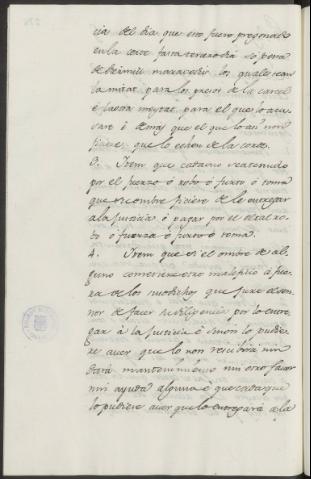 cia del dia que esto fuere pregonado
en la corte fasta tercero dia so pena
de diez mill maravedis los quales sean
la mitat para los presos de la carcel
e la otra meytat para el que lo acu-
sare e demas que el que lo asi non
ficiere, que lo echen de la corte.
3. Item que cada uno sea tenudo
por el fuerzo ó robo ó furto ó toma
que su ombre ficiere de lo entregar
a la Justicia ó pagar por él el tal ro-
bo ó fuerza ó furto ó toma.
4. Item que si el ombre de al-
guno cometiere otro maleficio á fue-
ra de los susodichos que jure el se-
nor de facer su diligencia por lo entre-
gar á la Justicia é sinon lo pudie-
re aver que lo non rescibirá nin
dará mantenimiento nin otro favor
nin ayuda alguna é que cada que
lo pudiere aver que lo entregará á la